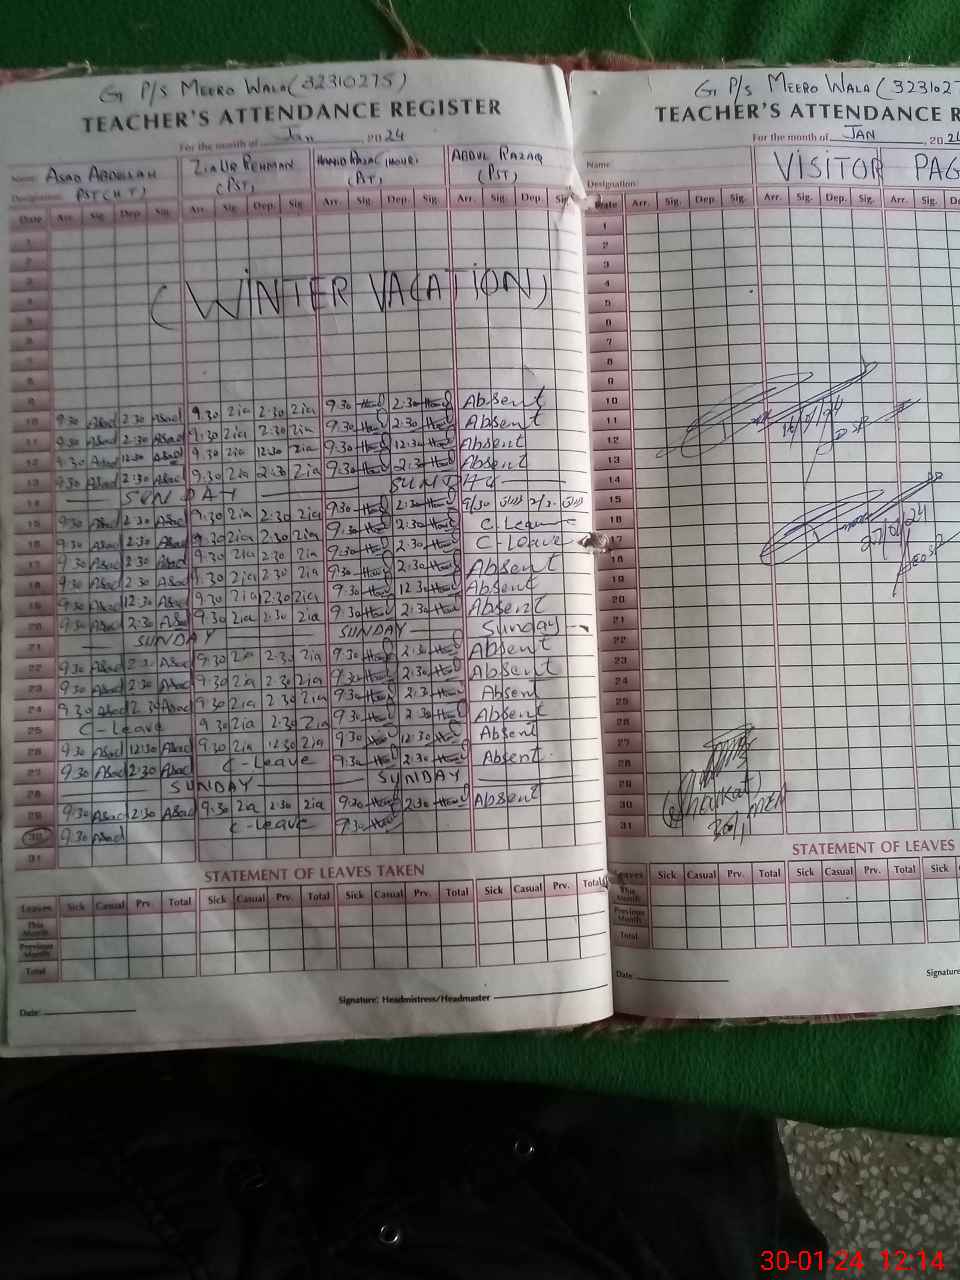 G P/S MEERO WALA (32310275)
TEACHER'S ATTENDANCE REGISTER
For the month of Jan 2024
Name: ASAD ABDULLAH ZIA UR REHMAN ABDUL RAZAQ
Designation: PST (H T) (PST) (PST)
Date Arr. Sig. Dep. Sig. Arr. Sig. Dep. Sig. Arr. Sig. Dep. Sig. Arr. Sig. Dep. Sig.
1
2
3
(WINTER VACATION)
4
5
6
7
8
9
10 9:30 Asad 2:30 Asad 9:30 Zia 2:30 Zia 9:30 2:30 Absent
11 9:30 Asad 2:30 Asad 9:30 Zia 2:30 Zia 9:30 2:30 Absent
12 9:30 Asad 12:30 Asad 9:30 Zia 12:30 Zia 9:30 12:30 Absent
13 9:30 Asad 2:30 Asad 9:30 Zia 2:30 Zia 9:30 2:30 Absent
14 SUNDAY SUNDAY
15 9:30 Asad 2:30 Asad 9:30 Zia 2:30 Zia 9:30 2:30 9/30
16 9:30 Asad 2:30 Asad 9:30 Zia 2:30 Zia 9:30 2:30 C-Leave
17 9:30 Asad 2:30 Asad 9:30 Zia 2:30 Zia 9:30 2:30 C-Leave
18 9:30 Asad 2:30 Asad 9:30 Zia 2:30 Zia 9:30 2:30 Absent
19 9:30 Asad 12:30 Asad 9:30 Zia 12:30 Zia 9:30 12:30 Absent
20 9:30 Asad 2:30 Asad 9:30 Zia 2:30 Zia 9:30 2:30 Absent
21 SUNDAY SUNDAY Sunday
22 9:30 Asad 2:30 Asad 9:30 Zia 2:30 Zia 9:30 2:30 Absent
23 9:30 Asad 2:30 Asad 9:30 Zia 2:30 Zia 9:30 2:30 Absent
24 9:30 Asad 2:30 Asad 9:30 Zia 2:30 Zia 9:30 2:30 Absent
25 C-Leave 9:30 Zia 2:30 Zia 9:30 2:30 Absent
26 9:30 Asad 12:30 Asad 9:30 Zia 12:30 Zia 9:30 12:30 Absent
27 9:30 Asad 2:30 Asad C-Leave 9:30 2:30 Absent
28 SUNDAY SUNDAY
29 9:30 Asad 2:30 Asad 9:30 Zia 2:30 Zia 9:30 2:30 Absent
30 9:30 Asad C-Leave 9:30
31
STATEMENT OF LEAVES TAKEN
Leaves Sick Casual Prv. Total Sick Casual Prv. Total Sick Casual Prv. Total Sick Casual Prv. Total
This Month
Previous Month
Total
Date: Signature: Headmistress/Headmaster
G P/S MEERO WALA (323102
TEACHER'S ATTENDANCE R
For the month of JAN 20
Name: VISITOR PAG
Designation:
Date Arr. Sig. Dep. Sig. Arr. Sig. Dep. Sig. Arr. Sig.
1
2
3
4
5
6
7
8
9
10
11
12
13
14
15
16
17
18
19
20
21
22
23
24
25
26
27
28
29
30
31
27/01/24
(Shaukat)
MEA
STATEMENT OF LEAVES
Leaves Sick Casual Prv. Total Sick Casual Prv. Total Sick
This Month
Previous Month
Total
Date: Signature
30-01-24 12:14